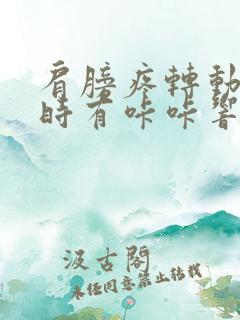 肩膀疼轉動
時有咔咔響
汲古閣
未经同意禁止转载